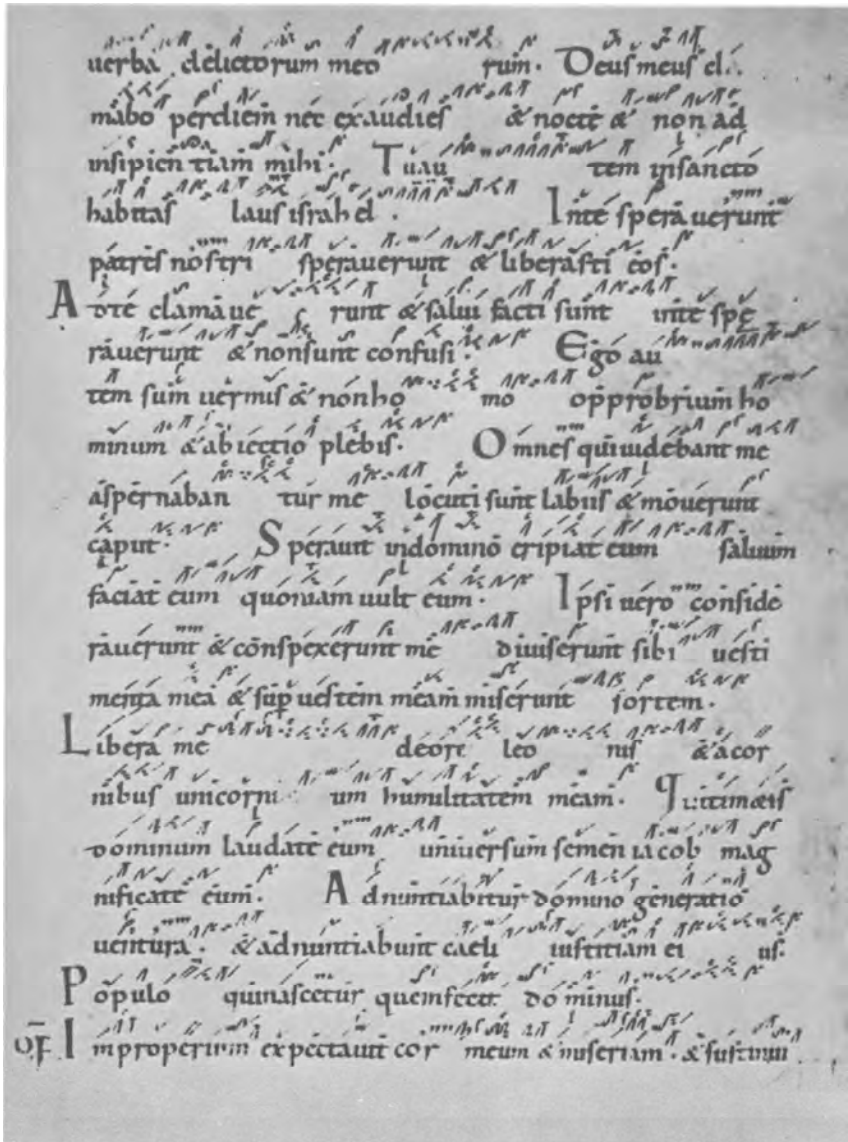 uerba delictorum meo rum. Deus meus cla
mabo per diem nec exaudies & nocte & non ad
insipientiam mihi. Tu au tem in sancto
habitas laus israhel. In te sperauerunt
patres nostri sperauerunt & liberasti eos.
Ad te clamaue runt & salui facti sunt in te spe
rauerunt & non sunt confusi. Ego au
tem sum uermis & non ho mo opprobrium ho
minum & abiectio plebis. Omnes qui uidebant me
aspernaban tur me locuti sunt labiis & mouerunt
caput. Sperauit in domino eripiat eum saluum
faciat eum quoniam uult eum. Ipsi uero conside
rauerunt & conspexerunt me diuiserunt sibi uesti
menta mea & sup uestem meam miserunt sortem.
Libera me deore leo nis & a cor
nibus unicorni um humilitatem meam. Qui tim&is
dominum laudate eum uniuersum semen iacob mag
nificate eum. Adnuntiabitur domino generatio
uentura. & adnuntiabunt caeli iustitiam ei us.
Populo qui nascetur quem fecit dominus.
OF Improperium expectauit cor meum & miseriam. & sustinui